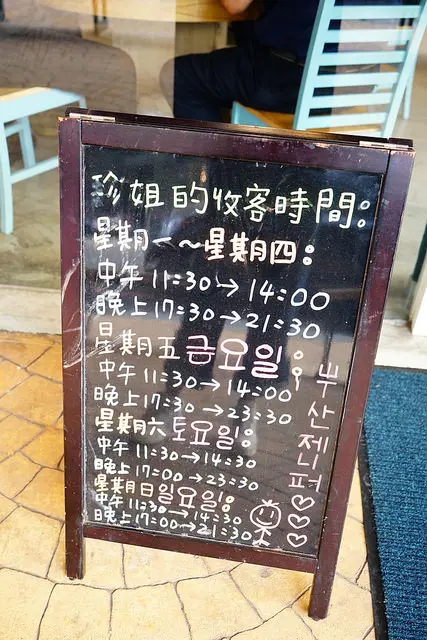 珍姐的收客時間:
星期一～星期四:
中午 11:30→14:00
晚上 17:30→21:30
星期五 금요일:
中午 11:30→14:00
晚上 17:30→23:30
星期六 토요일:
中午 11:30→14:30
晚上 17:00→23:30
星期日 일요일:
中午 11:30→14:30
晚上 17:00→21:30
부산제니퍼♡♡♡